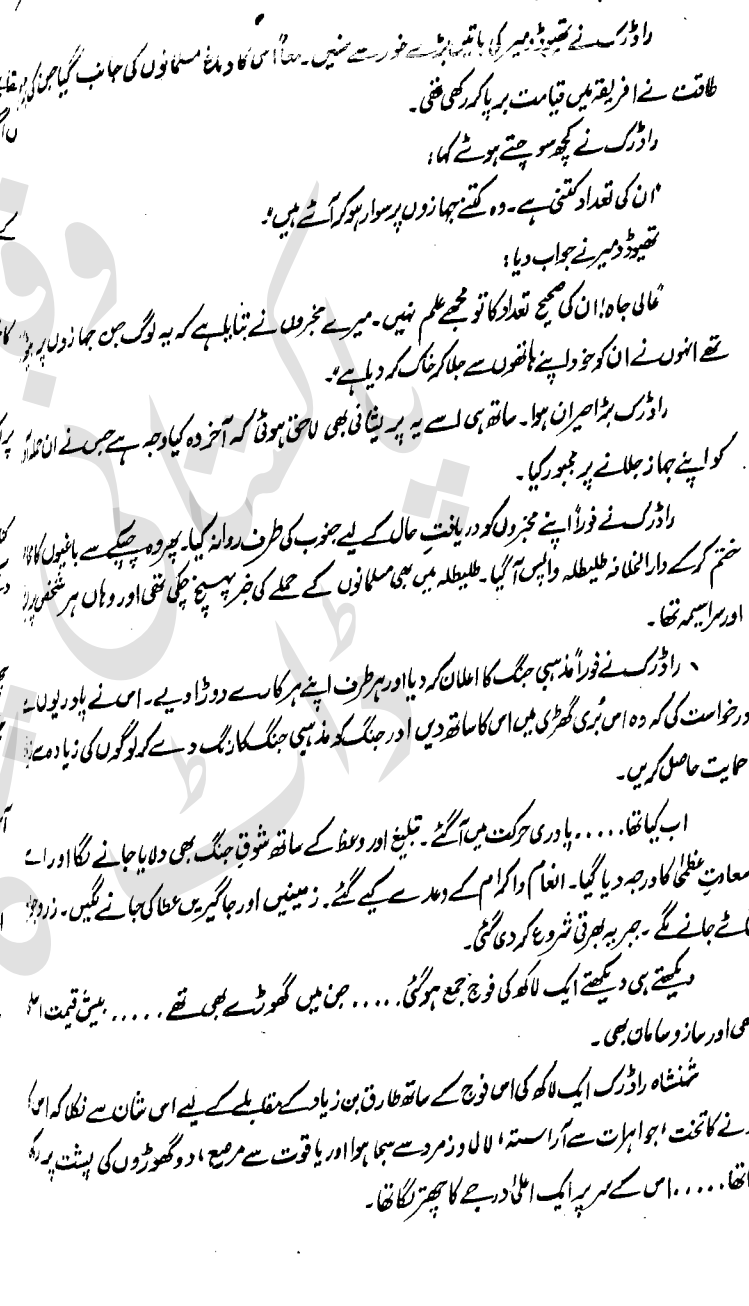 راڈرک نے تھیوڈومیر کی باتیں بڑے غور سے سنیں۔ معاً اس کا دماغ مسلمانوں کی جانب گیا جن کی
طاقت نے افریقہ میں قیامت برپا کر رکھی تھی۔
راڈرک نے کچھ سوچتے ہوئے کہا:
"ان کی تعداد کتنی ہے۔ وہ کتنے جہازوں پر سوار ہو کر آئے ہیں"۔
تھیوڈومیر نے جواب دیا:
"عالی جاہ! ان کی صحیح تعداد کا تو مجھے علم نہیں۔ میرے مخبروں نے بتایا ہے کہ یہ لوگ جن جہازوں پر
تھے انہوں نے ان کو خود اپنے ہاتھوں سے جلا کر خاک کر دیا ہے"۔
راڈرک بڑا حیران ہوا۔ ساتھ ہی اسے یہ پریشانی بھی لاحق ہوئی کہ آخر وہ کیا وجہ ہے جس نے ان
کو اپنے جہاز جلانے پر مجبور کیا۔
راڈرک نے فوراً اپنے مخبروں کو دریافتِ حال کے لیے جنوب کی طرف روانہ کیا۔ پھر وہ چپکے سے باغیوں کا
ختم کر کے دارالخلافہ طلیطلہ واپس آ گیا۔ طلیطلہ میں بھی مسلمانوں کے حملے کی خبر پہنچ چکی تھی اور وہاں ہر شخص
اور سراسیمہ تھا۔
راڈرک نے فوراً مذہبی جنگ کا اعلان کر دیا اور ہر طرف اپنے ہرکارے دوڑا دیے۔ اس نے پادریوں سے
درخواست کی کہ وہ اس بُری گھڑی میں اس کا ساتھ دیں اور جنگ کو مذہبی جنگ کا رنگ دے کر لوگوں کی زیادہ سے
حمایت حاصل کریں۔
اب کیا تھا..... پادری حرکت میں آ گئے۔ تبلیغ اور وعظ کے ساتھ شوقِ جنگ بھی دلایا جانے لگا اور اسے
سعادتِ عظمیٰ کا درجہ دیا گیا۔ انعام و اکرام کے وعدے کیے گئے۔ زمینیں اور جاگیریں عطا کی جانے لگیں۔
جانے لگے۔ جبریہ بھرتی شروع کر دی گئی۔
دیکھتے ہی دیکھتے ایک لاکھ کی فوج جمع ہو گئی..... جن میں گھوڑے بھی تھے..... بیش قیمت
اور ساز و سامان بھی۔
شہنشاہ راڈرک ایک لاکھ کی اس فوج کے ساتھ طارق بن زیاد کے مقابلے کے لیے اس شان سے نکلا کہ اس
کا تخت، جواہرات سے آراستہ، لال و زمرد سے سجا ہوا اور یاقوت سے مرصع، دو گھوڑوں کی پشت پر
تھا..... اس کے سر پر ایک اعلیٰ درجے کا چھتر لگا تھا۔